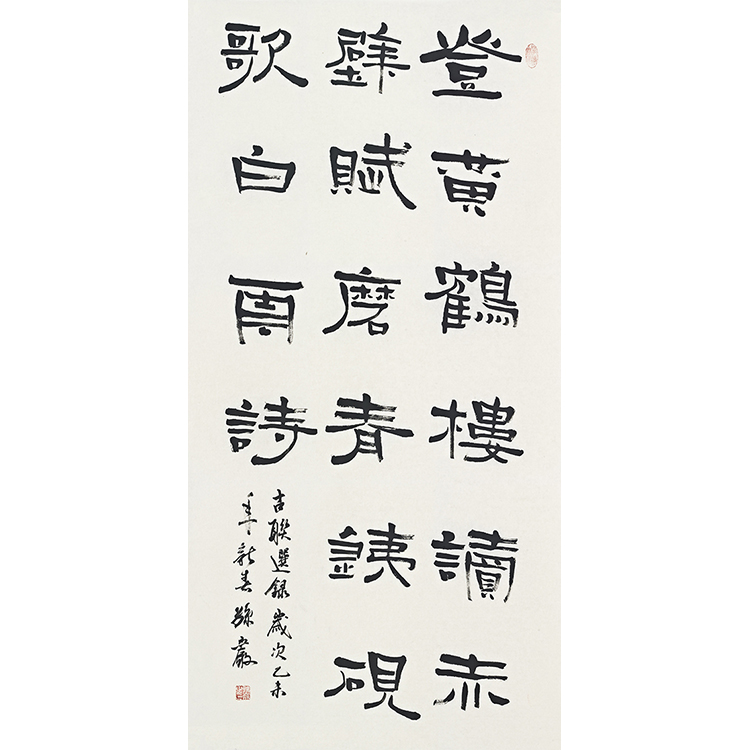 登黃鶴樓讀赤
壁賦磨青銕硯
歌白雨詩
古聯選錄歲次乙未
年新春孫嚴